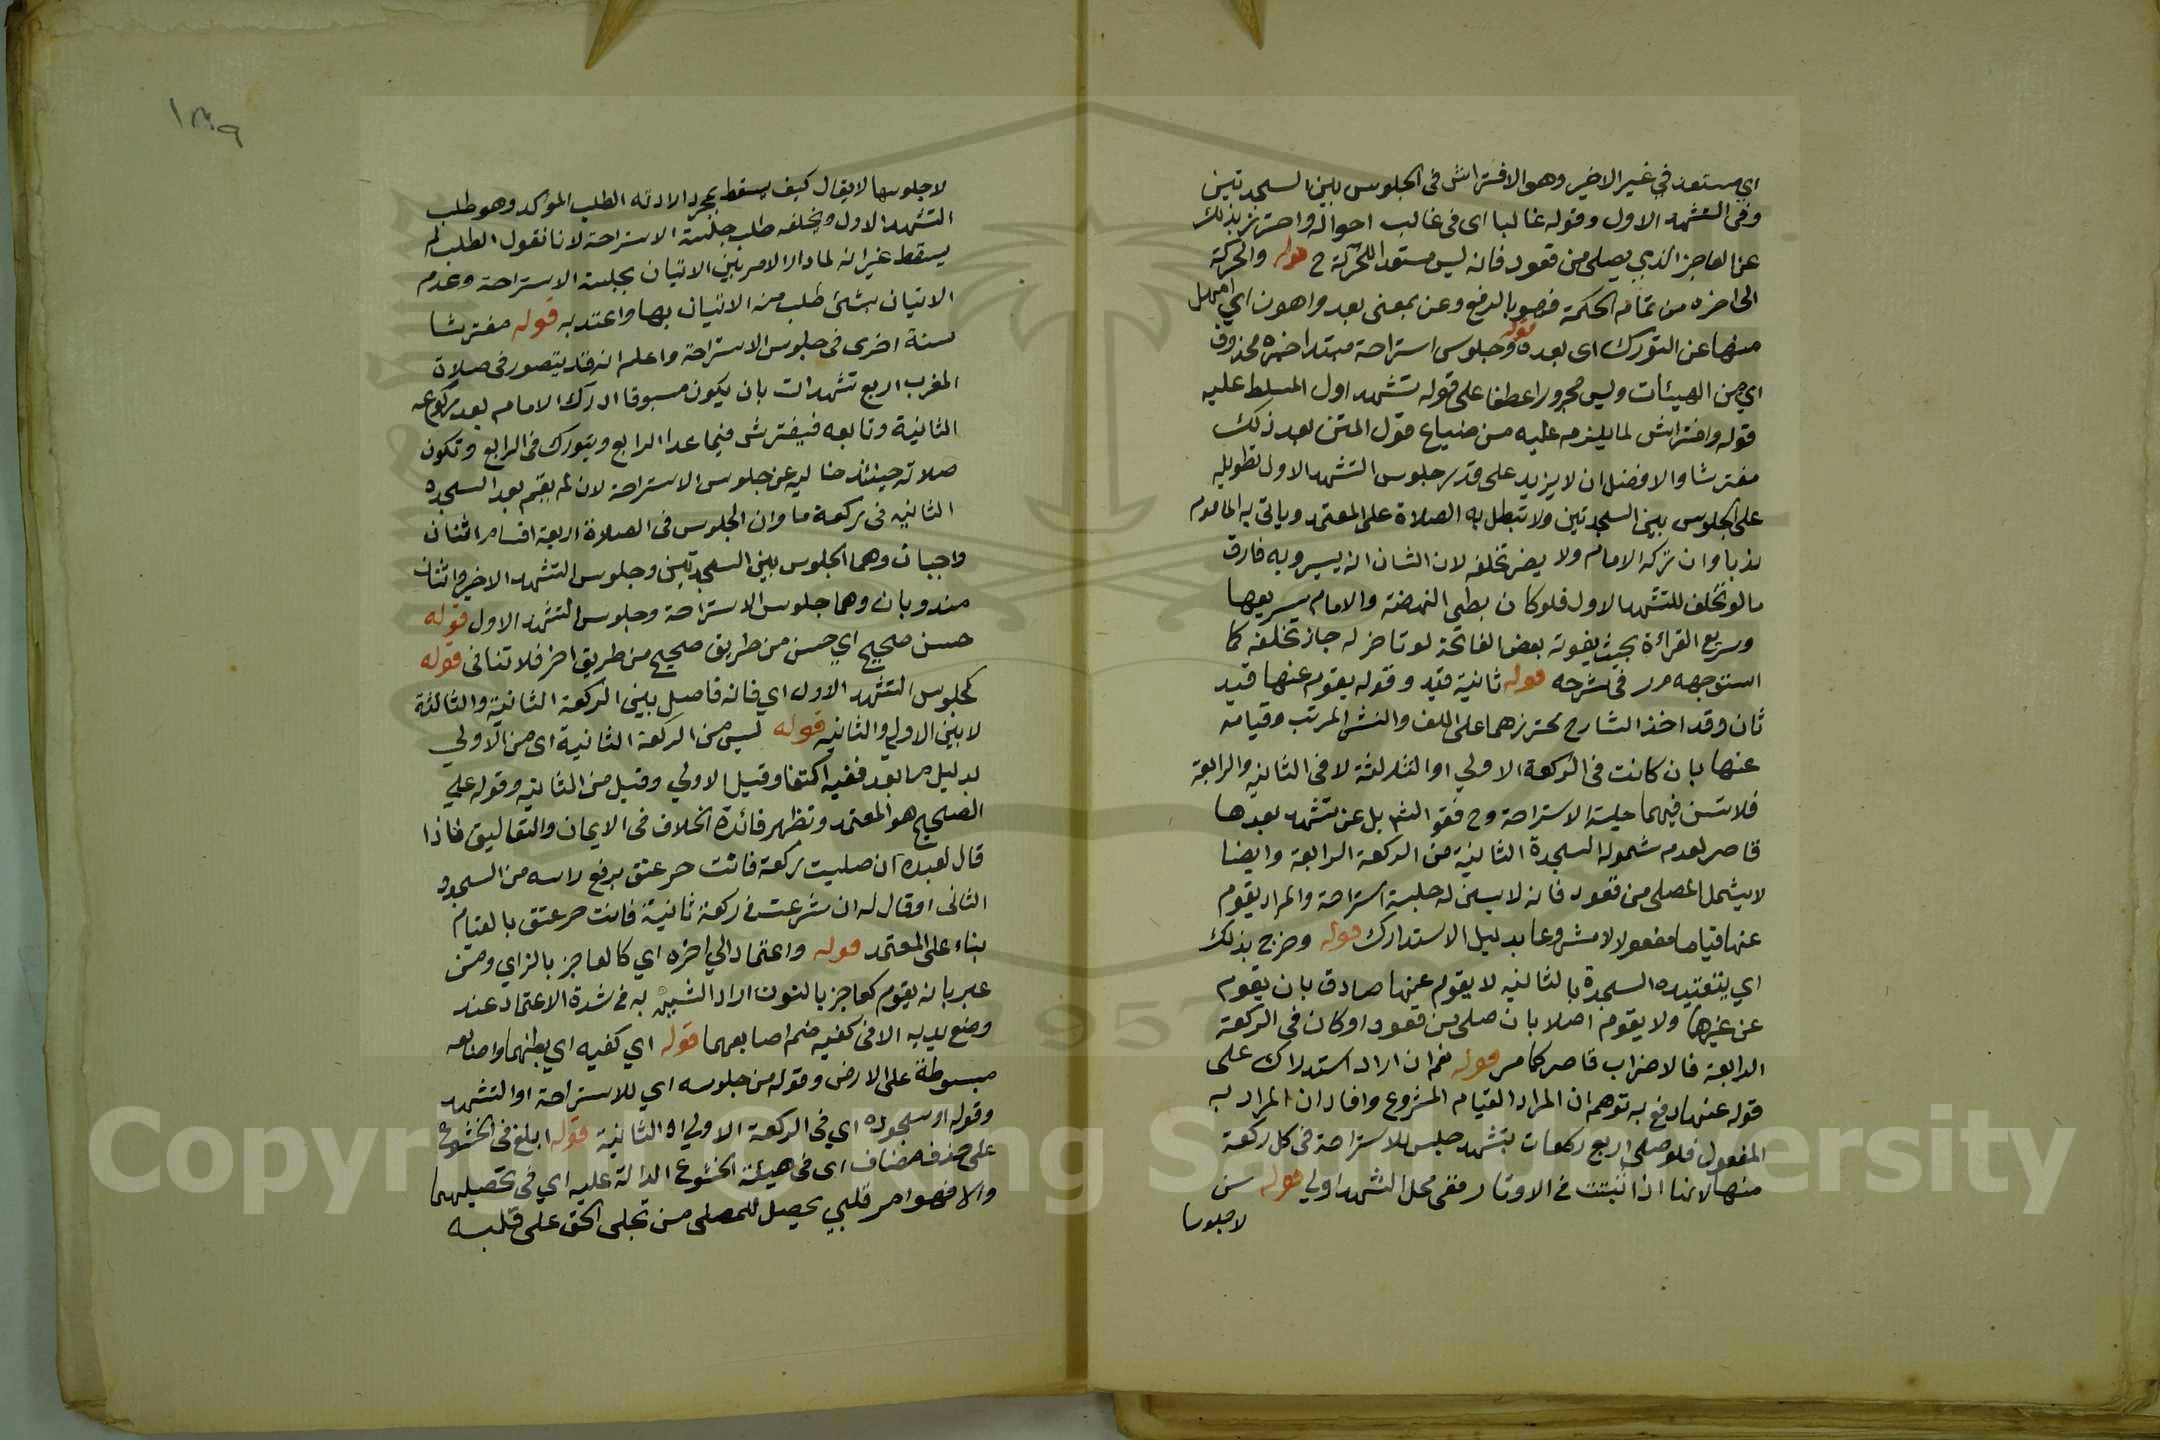 اي مستعد في غير الاخير وهو الافتراش في الجلوس بين السجدتين
وفي التشهد الاول وقوله غالبا اى في غالب احواله واحترز بذلك
عن العاجز الذي يصلي من قعود فانه ليس مستعدا للحركة ح قوله والحركة
الى اخره من تمام الحكمة فهو بالرفع وعن بمعنى بعد واهون اي اسهل
منها عن التورك اى بعده قوله وجلوس استراحة مبتدا خبره محذوف
اي من الهيئات وليس مجرورا عطفا على قوله تشهد اول المسلط عليه
قوله وافتراش لما يلزم عليه من ضياع قول المتن بعد ذلك
مفترشا والافضل ان لا يزيد على قدر جلوس التشهد الاول تطويله
على الجلوس بين السجدتين ولا تبطل به الصلاة على المعتمد وياتي به الماموم
ندبا وان تركه الامام ولا يضر تخلفه لان الشان انه يسير وبه فارق
ما لو تخلف للتشهد الاول فلو كان بطى النهضة والامام سريعها
وسريع القراءة بحيث يفوته بعض الفاتحة لو تاخر له جاز تخلفه كما
استوجهه مر في شرحه قوله ثانية قيد وقوله يقوم عنها قيد
ثان وقد اخذ الشارح محترزهما على اللف والنشر المرتب وقيامه
عنها بان كانت في الركعة الاولي او الثالثة لا في الثانيه والرابعة
فلا تسن فيهما جلسة الاستراحة وح فقو الشم بل عن تشهد بعدها
قاصر لعدم شموله السجدة الثانية من الركعة الرابعة وايضا
لا يشمل المصلى من قعود فانه لا يسن له جلسة استراحة والمراد يقوم
عنها قياما مفعولا لا مشروعا بدليل الاستدارك قوله وخرج بذلك
اي بتقييده السجدة بالثانيه لا يقوم عنها صادق بان يقوم
عن غيرها ولا يقوم اصلا بان صلى من قعود او كان في الركعة
الرابعة فالاضراب قاصر كما مر قوله نعم ان اراد استدراك على
قوله عنها دفع به توهم ان المراد القيام المشروع وافاد ان المراد به
المفعول فلو صلى اربع ركعات بتشهد جلس للاستراحة في كل ركعة
منها لانها اذا ثبتت في الاوتار ففي محل التشهد اولي قوله سن
لا جلوسا
١٣٩
لا جلوسها لا يقال كيف يسقط بمجرد ارادته الطلب الموكد وهو طلب
التشهد الاول ويخلفه طلب جلسة الاستراحة لانا نقول الطلب لم
يسقط غير انه لما دار الامر بين الاتيان بجلسة الاستراحة وعدم
الاتيان بشئ طلب منه الاتيان بها واعتد به قوله مفترشا
سنة اخرى في جلوس الاستراحة واعلم انه قد يتصور في صلاة
المغرب اربع تشهدات بان يكون مسبوقا ادرك الامام بعد ركوعه
الثانية وتابعه فيفترش فيما عدا الرابع ويتورك في الرابع وتكون
صلاته حينئذ خاليه عن جلوس الاستراحة لان لم يقم بعد السجده
الثانيه في ركعة ما وان الجلوس في الصلاة اربعة اقسام اثنان
واجبان وهما الجلوس بين السجدتين وجلوس التشهد الاخير واثنان
مندوبان وهما جلوس الاستراحة وجلوس التشهد الاول قوله
حسن صحيح اي حسن من طريق صحيح من طريق اخر فلا تنافى قوله
كجلوس التشهد الاول اي فانه فاصل بين الركعة الثانية والثالثة
لا بين الاولي والثانيه قوله ليس من الركعة الثانية اى من الاولي
بدليل ما بعد ففيه اكتفا وقيل الاولي وقيل من الثانيه وقوله علي
الصحيح هو المعتمد وتظهر فائدة الخلاف في الايمان والتعاليق فاذا
قال لعبده ان صليت ركعة فانت حر عتق برفع راسه من السجود
الثانى او قال له ان شرعت في ركعة ثانية فانت حر عتق بالقيام
بناء على المعتمد قوله واعتماد الي اخره اي كالعاجز بالزاي ومن
عبر بانه يقوم كعاجز بالنون اراد الشبيه به في شدة الاعتماد عند
وضع يديه الا في كفيه ضم اصابعهما قوله اي كفيه اي بطنهما واصابعه
مبسوطة على الارض وقوله من جلوسه اي للاستراحة او التشهد
وقوله او سجوده اي في الركعة الاولي او الثانية قوله ابلغ في الخشوع
على حذف مضاف اى في هيئة الخشوع الدالة عليه اي في تحصيلهما
والا فهو امر قلبي يحصل للمصلى من تجلى الحق على قلبه
Copyright © King Saud University
1957